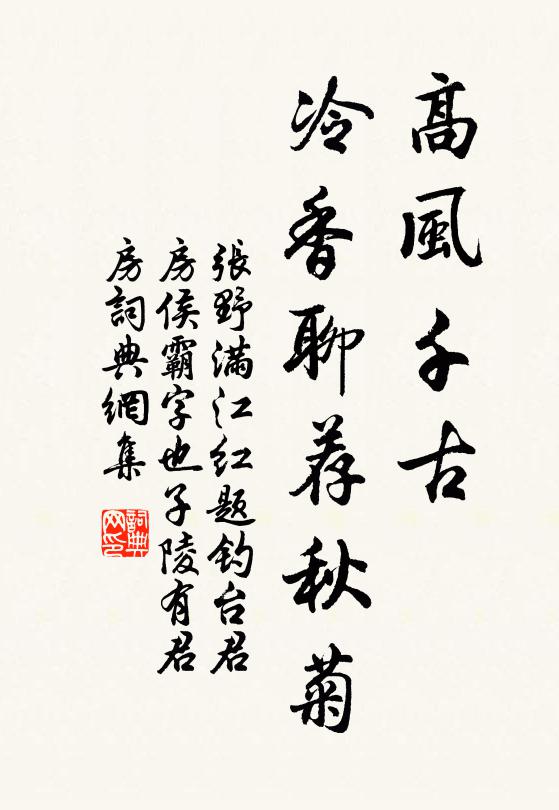 高風千古
冷香聊荐秋菊
張野满江红题钓台君
房侯霸字也子陵有君
房詞典網集
詞典
网印